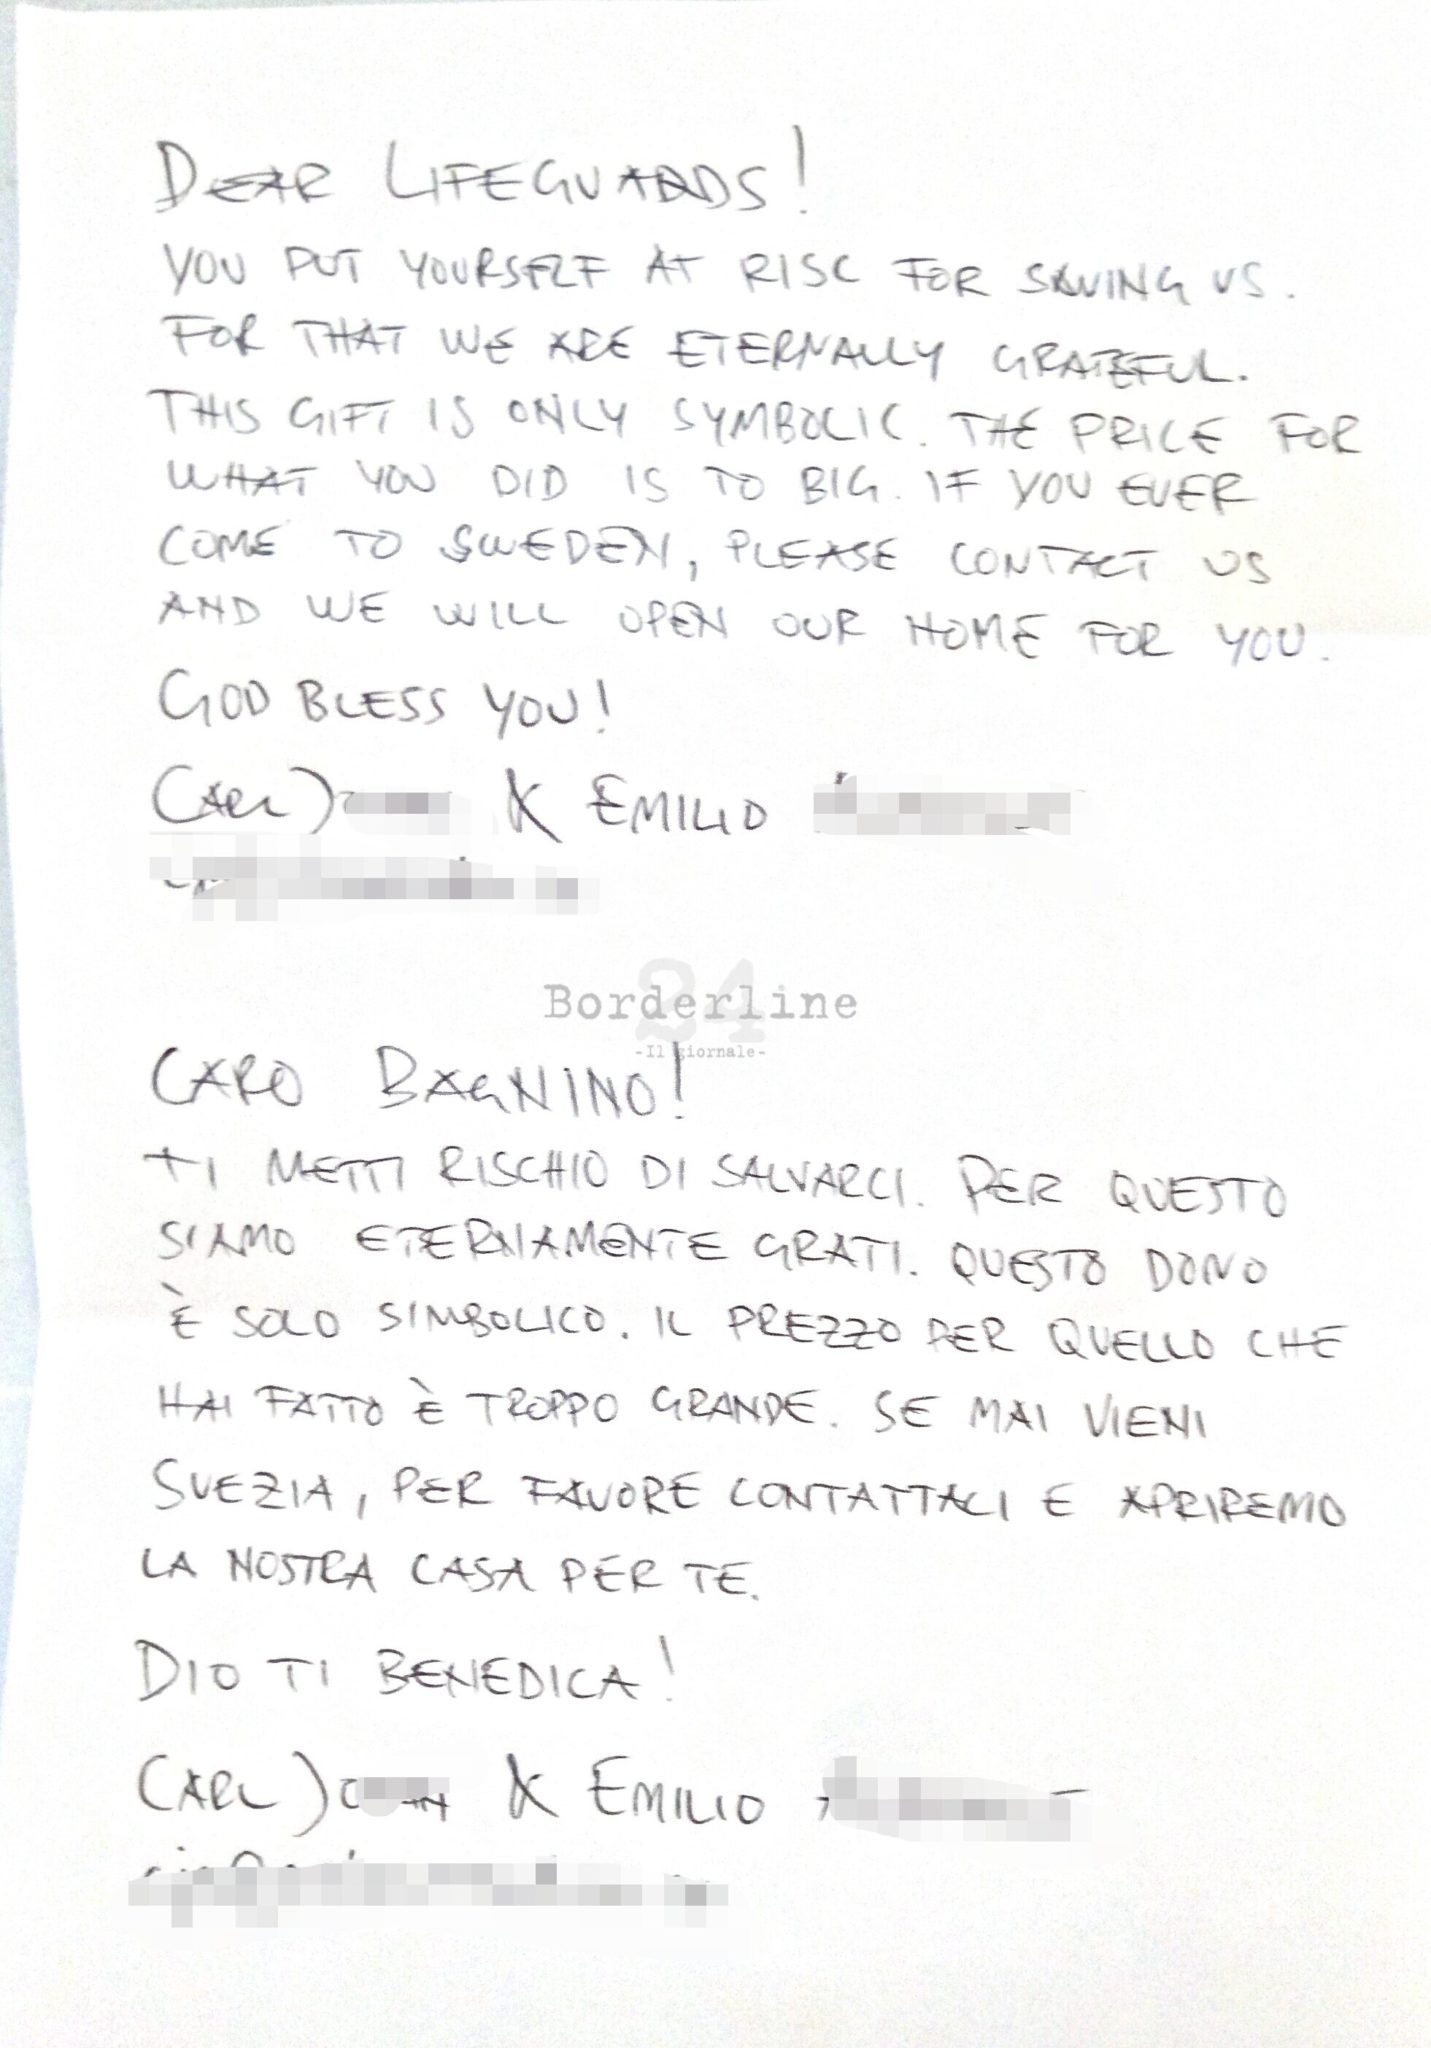 DEAR LIFEGUARDS!
YOU PUT YOURSELF AT RISC FOR SAVING US.
FOR THAT WE ARE ETERNALLY GRATEFUL.
THIS GIFT IS ONLY SYMBOLIC. THE PRICE FOR
WHAT YOU DID IS TO BIG. IF YOU EVER
COME TO SWEDEN, PLEASE CONTACT US
AND WE WILL OPEN OUR HOME FOR YOU.
GOD BLESS YOU!
CARL & EMILIO
24
Borderline
-Il giornale-
CARO BAGNINO!
TI METTI RISCHIO DI SALVARCI. PER QUESTO
SIAMO ETERNAMENTE GRATI. QUESTO DONO
È SOLO SIMBOLICO. IL PREZZO PER QUELLO CHE
HAI FATTO È TROPPO GRANDE. SE MAI VIENI
SVEZIA, PER FAVORE CONTATTACI E APRIREMO
LA NOSTRA CASA PER TE.
DIO TI BENEDICA!
CARL & EMILIO